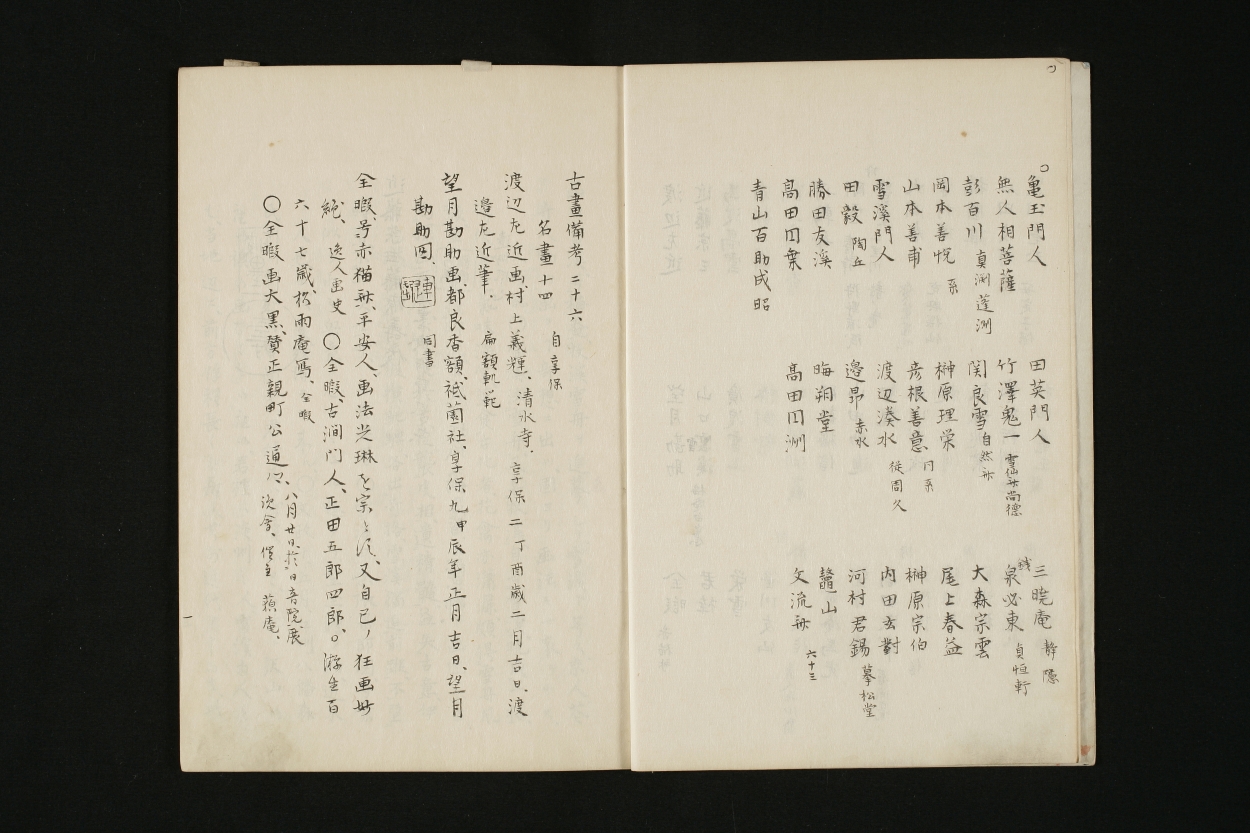 亀玉門人 田英門人 三暁庵 静隠
無人相菩薩 竹澤鬼一 雪仙舟尚徳 泉必東 貞恒軒
彭百川 真渕 蓬洲 関良雪 自然舟 大森宗雲
岡本善悦 系 榊原理栄 尾上春益
山本善甫 彦根善意 同系 榊原宗伯
雪溪門人 渡辺湊水 従周久 内田玄對
田毅 陶丘 邉昴 赤水 河村君錫 摹松堂
勝田友溪 晦朔堂 鼇山
高田円乗 高田円洲 文流舟 六十三
青山百助成昭
古畫備考二十六
名畫十四 自享保
渡辺左近画、村上義輝、清水寺、享保二丁酉歳二月吉日、渡
邉左近筆、 扁額軌範
望月勘助画、都良香額、祗薗社、享保九甲辰年正月吉日、望月
勘助図、 同書
全暇、号赤猫舟、平安人、画法光琳を宗とす、又自己ノ狂画妙
絶、 逸人画史 〇全暇、古澗門人、正田五郎四郎。游生百
六十七歳、松雨庵写、全暇
〇全暇画大黒、賛正親町公通卿、八月廿日、於日音院展
次會、催主 蘋庵、